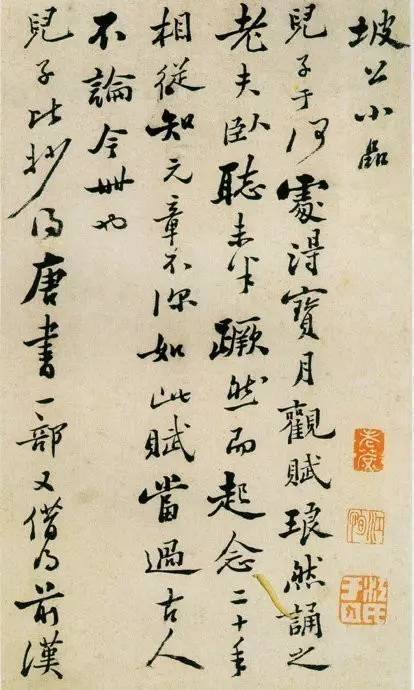 坡公小品
兒子于何處得寶月觀賦琅然誦之
老夫臥聽未半蹶然而起念二十年
相從知元章不深如此賦當過古人
不論今世也
兒子比抄得唐書一部又借得前漢